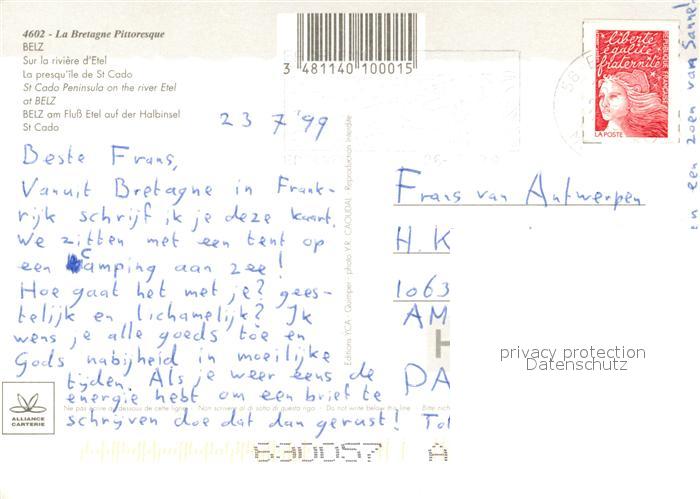 4602 - La Bretagne Pittoresque
BELZ
Sur la rivière d'Etel
La presqu'île de St Cado
St Cado Peninsula on the river Etel
at BELZ
BELZ am Fluß Etel auf der Halbinsel
St Cado
3 481140 100015
liberté
égalité
fraternité
RÉPUBLIQUE FRANÇAISE
LA POSTE
23 7 '99
Beste Frans,
Vanuit Bretagne in Frank-
rijk schrijf ik je deze kaart.
We zitten met een tent op
een camping aan zee!
Hoe gaat het met je? gees-
telijk en lichamelijk? Ik
wens je alle goeds toe en
Gods nabijheid in moeilijke
tijden. Als je weer eens de
energie hebt om een brief te
schrijven doe dat dan gerust! Tot
Editions YCA - Quimper - photo V.R. CAOUDAL Reproduction interdite
Frans van Antwerpen
H.K
1063
AM
H
PA
in een zeen van
privacy protection
Datenschutz
ALLIANCE
CARTERIE
Ne pas écrire au dessous de cette ligne Non scrivere al di sotto di questa riga - Do not write below this line Bitte nich
830057 A